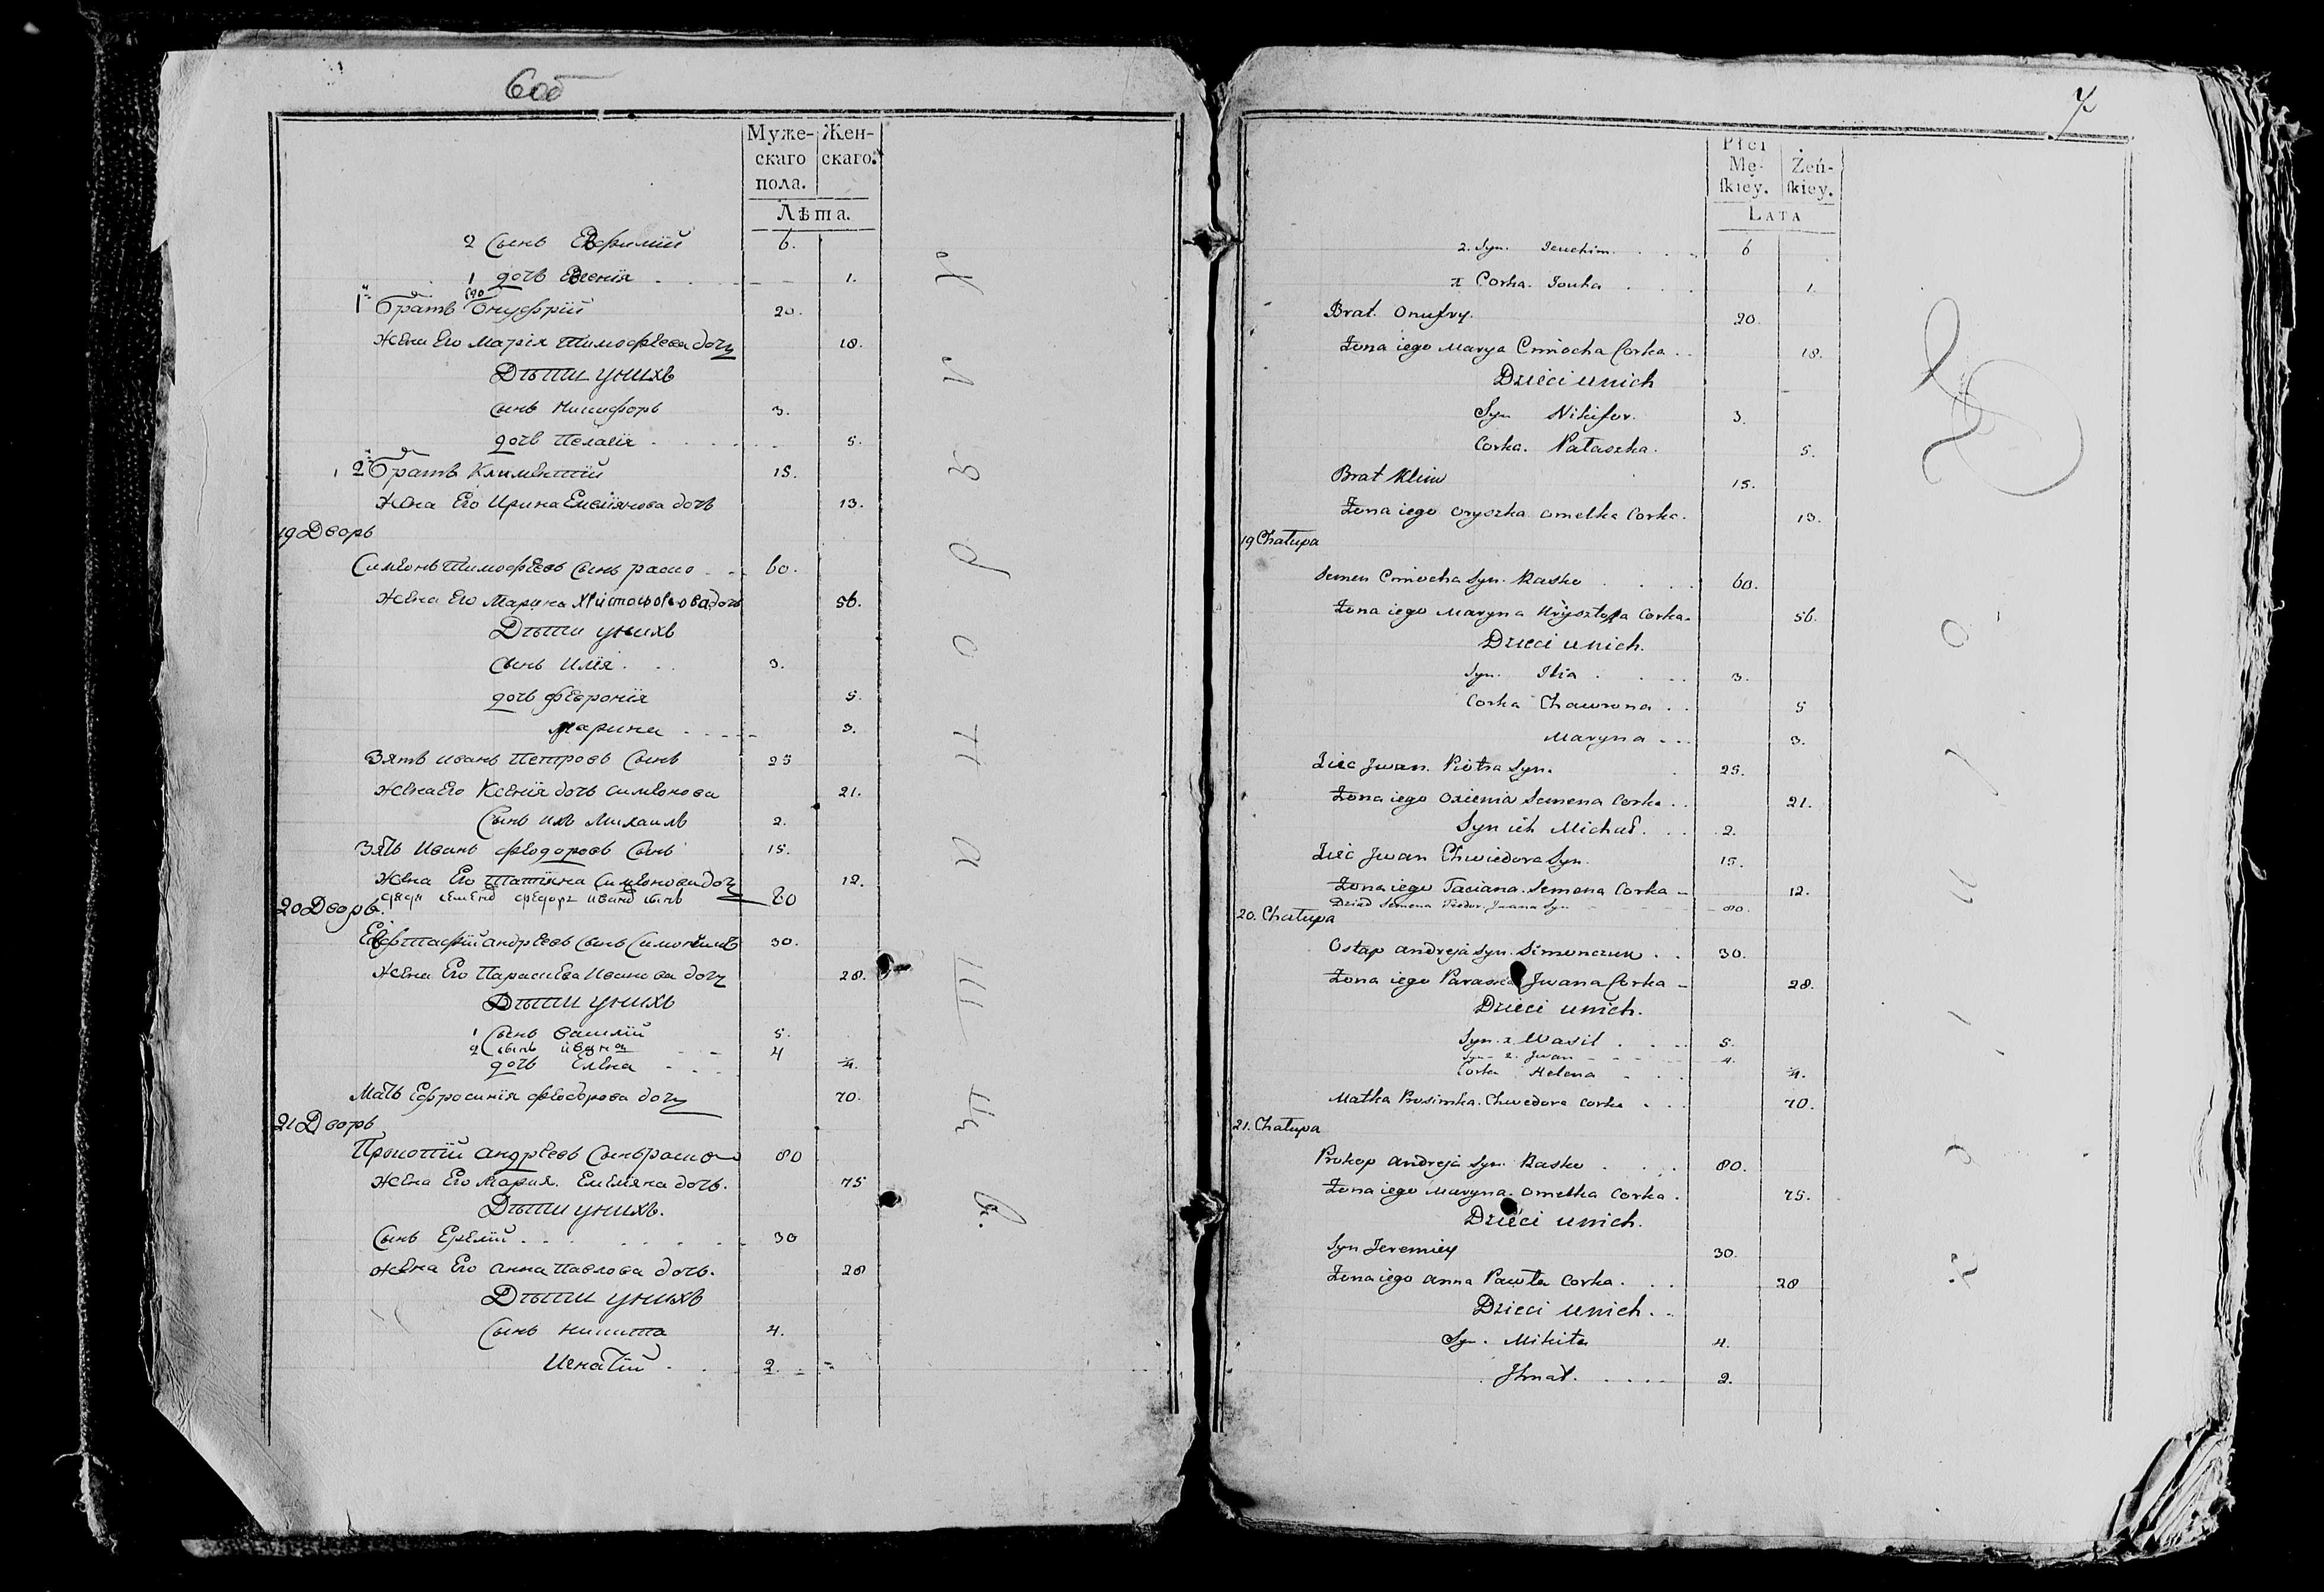 6об
Муже-
скаго
пола.
Жен-
скаго.
Лѣта.
2 Сынъ Евфимій 6.
1 дочь Евгенія 1.
1й Братъ его Онуфрій 20.
Жена Его Марія Тимофѣева дочь 18.
Дѣти у нихъ
сынъ Никифоръ 3.
дочь Пелагія 5.
2й Братъ Климентій 15.
Жена Его Ирина Емелянова дочь 13.
19 Дворъ
Симеонъ Тимофѣевъ Сынъ 60.
Жена Его Марина дочь 56.
Дѣти у нихъ
Сынъ Илія 3.
дочь Феврониія 5.
Марина 3.
Зять Иванъ Петровъ Сынъ 25
Жена Его Ксенія дочь Симеонова 21.
Сынъ ихъ Михаилъ 2.
Зять Иванъ Феодоровъ Сынъ 15.
Жена Его Татіяна Симеонова дочь 12.
80
20 Дворъ.
Евстафій Андрѣевъ Сынъ 30.
Жена Его Параскева Иванова дочь 28.
Дѣти у нихъ
1 Сынъ Василій 5.
2 Сынъ Иванъ 4
дочь Елена
Мать Ефросинія Феодорова дочь 70.
21 Дворъ
Прокопій Андрѣевъ Сынъ 80
Жена Его Мария. Емеляна дочь. 75
Дѣти у нихъ.
Сынъ Еремій 30
Жена Его Анна Павлова дочь. 28
Дѣти у нихъ
Сынъ Никита 4.
Игнатій 2.
7
Płci
Mę-
skiey.
Żeń-
skiey.
Lata
2. Syn. Jeuchim. 6
1 Corka. Jouha 1.
Brat. Onufry. 20.
Żona iego Marya Cimocha Corka 18.
Dzieci u nich
Syn Nikifor. 3.
Corka. Nataszka. 5.
Brat Klim 15.
Żona iego Oryszka Omelka Corka. 13.
19 Chałupa
Semen Cimocha Syn. Rasko 60.
Żona iego Maryna Krysztofa Corka. 56.
Dzieci u nich.
Syn. Ilia 3.
Corka Chawrona 5
Maryna 3.
Zięc Jwan. Piotra Syn. 25.
Żona iego Oxienia Semena Corka 21.
Syn ich Michał. 2.
Zięc Jwan Chwiedora Syn. 15.
Żona iego Taciana. Semena Corka 12.
Dziad Semena Fiodor Jwana Syn 80.
20. Chałupa
Ostap Andreja Syn. Simonczuk 30.
Żona iego Paraska Jwana Corka 28.
Dzieci u nich.
Syn. 1. Wasil 5.
Syn 2. Jwan 4.
Corka Helena
Matka Prosimka. Chwedora Corka 70.
21. Chałupa
Prokop Andreja Syn. Rasko 80.
Żona iego Maryna. Omelka Corka. 75.
Dzieci u nich.
Syn Jeremiey 30.
Żona iego Anna Pawła Corka. 28
Dzieci u nich.
Syn. Mikita 4.
Jhnat. 2.